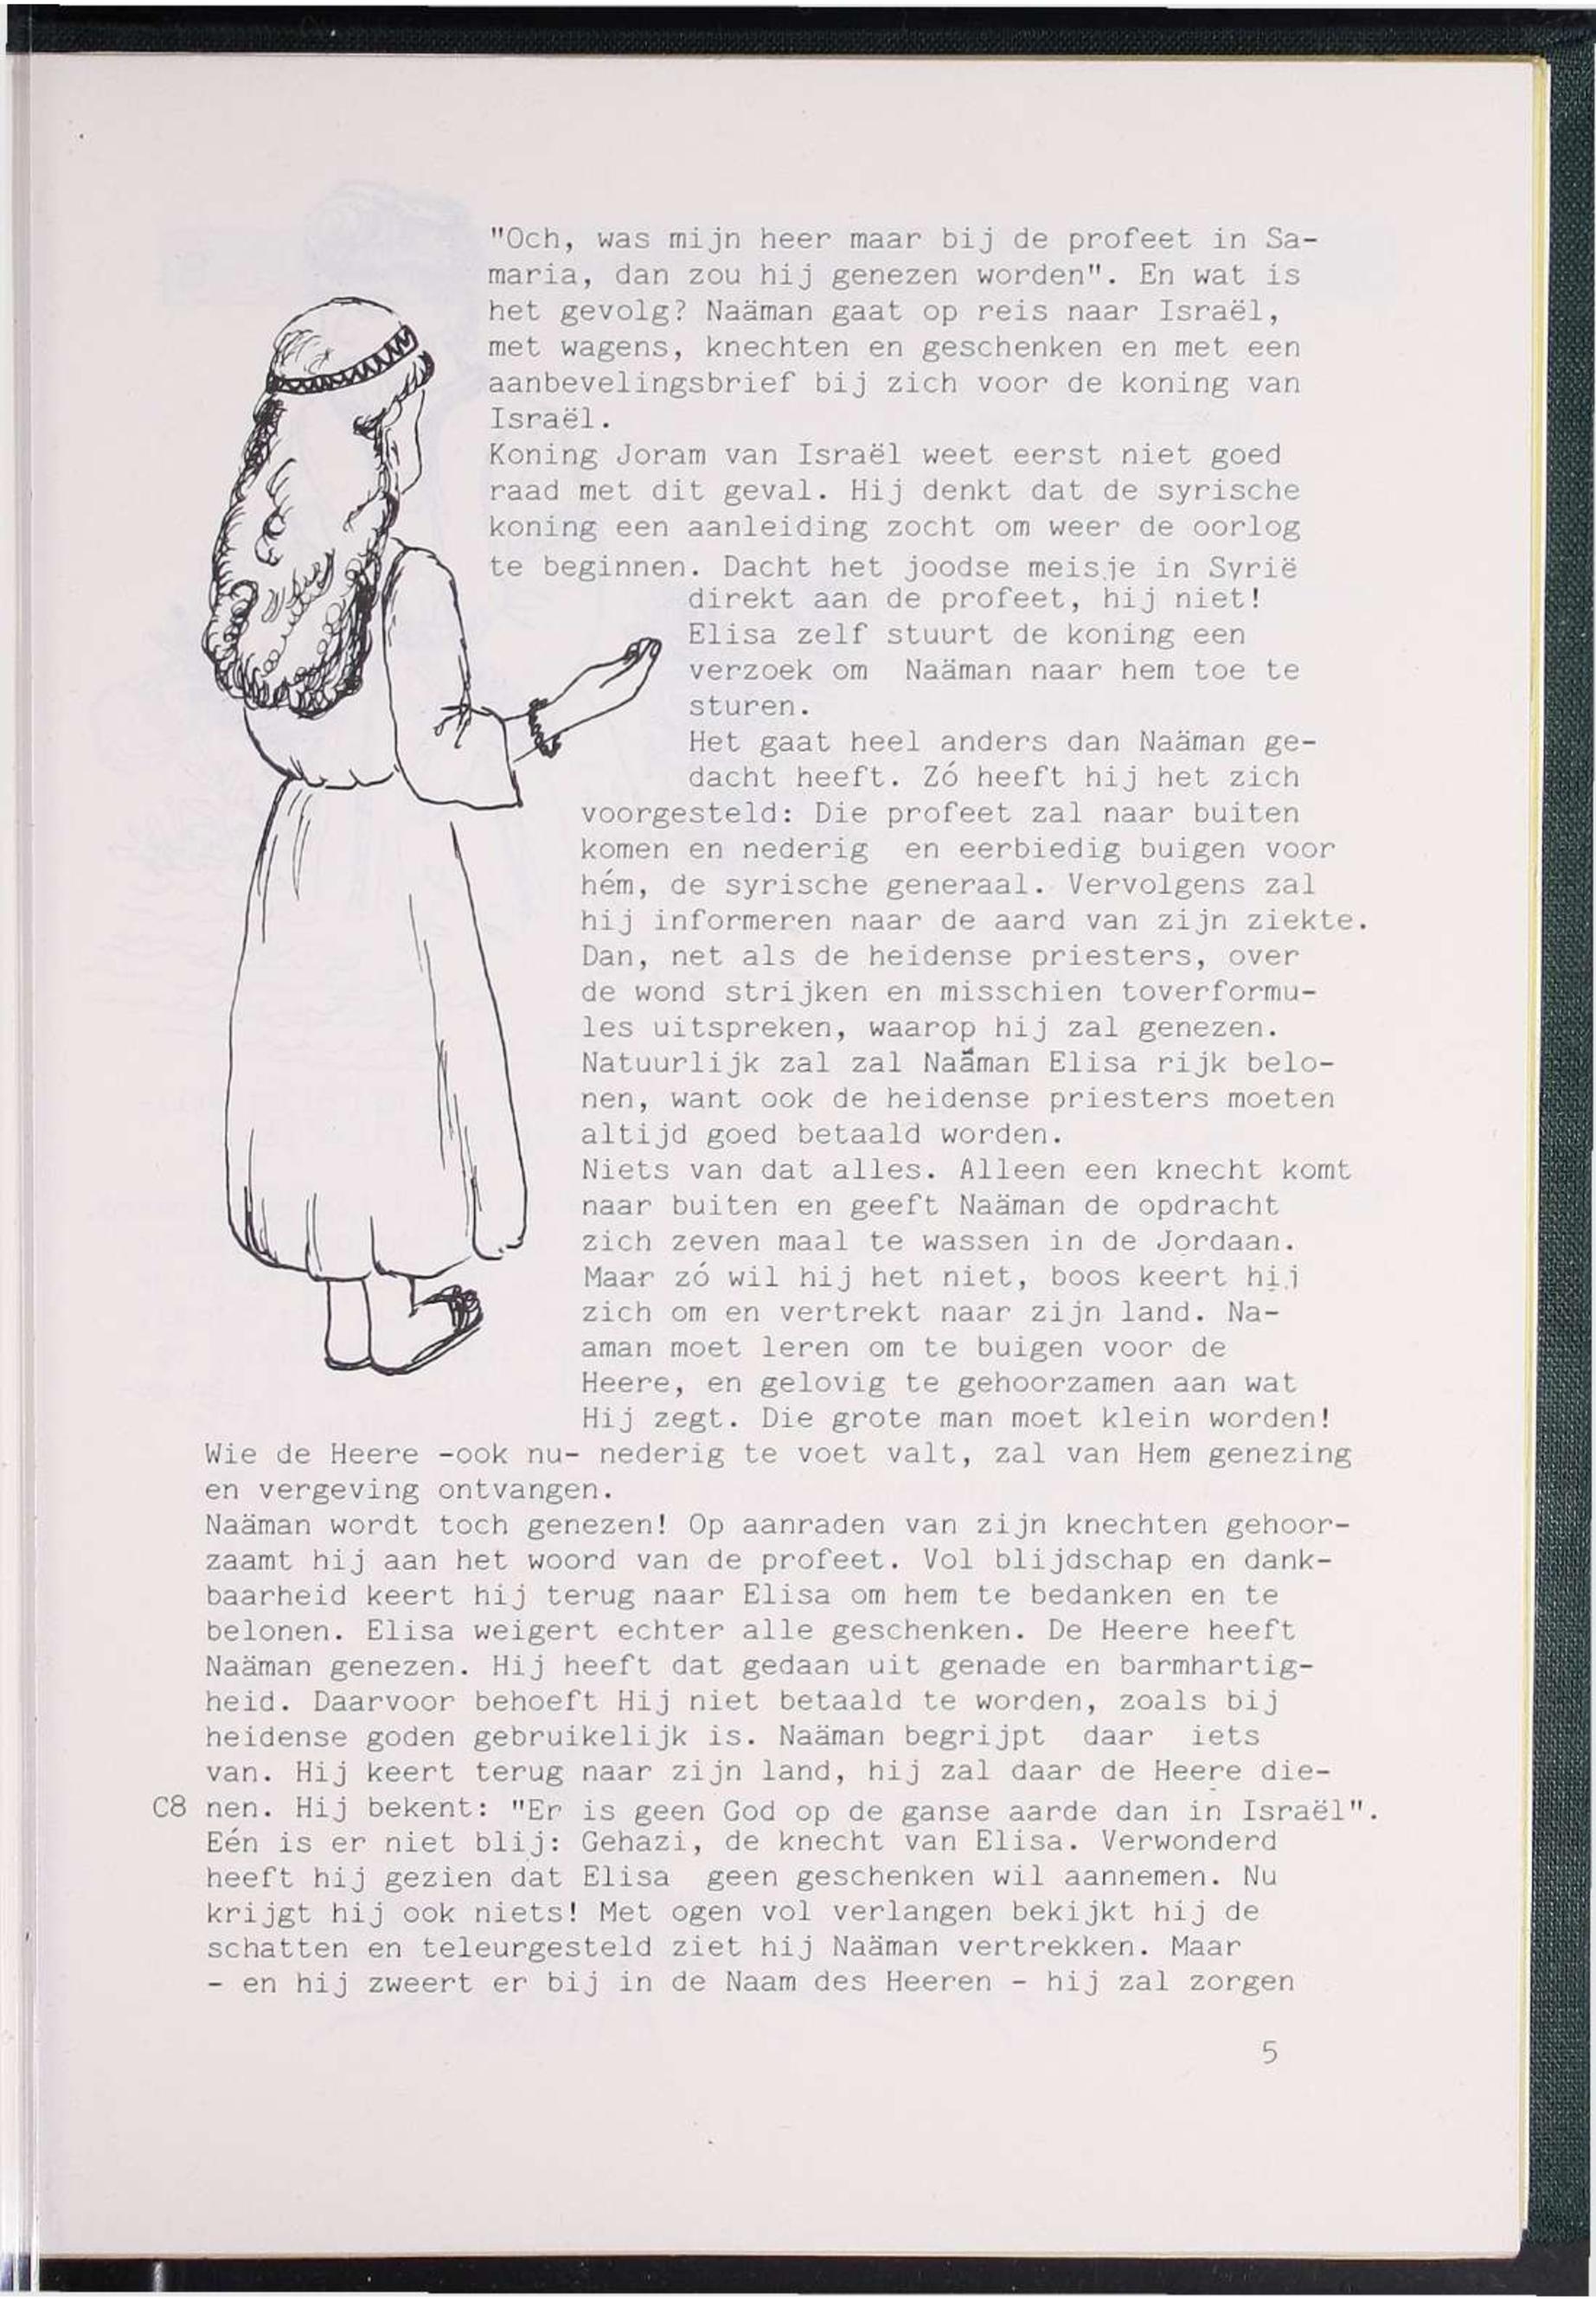 "Och, was mijn heer maar bij de profeet in Sa-
maria, dan zou hij genezen worden". En wat is
het gevolg? Naäman gaat op reis naar Israël,
met wagens, knechten en geschenken en met een
aanbevelingsbrief bij zich voor de koning van
Israël.
Koning Joram van Israël weet eerst niet goed
raad met dit geval. Hij denkt dat de syrische
koning een aanleiding zocht om weer de oorlog
te beginnen. Dacht het joodse meisje in Syrië
direkt aan de profeet, hij niet!
Elisa zelf stuurt de koning een
verzoek om Naäman naar hem toe te
sturen.
Het gaat heel anders dan Naäman ge-
dacht heeft. Zó heeft hij het zich
voorgesteld: Die profeet zal naar buiten
komen en nederig en eerbiedig buigen voor
hém, de syrische generaal. Vervolgens zal
hij informeren naar de aard van zijn ziekte.
Dan, net als de heidense priesters, over
de wond strijken en misschien toverformu-
les uitspreken, waarop hij zal genezen.
Natuurlijk zal zal Naäman Elisa rijk belo-
nen, want ook de heidense priesters moeten
altijd goed betaald worden.
Niets van dat alles. Alleen een knecht komt
naar buiten en geeft Naäman de opdracht
zich zeven maal te wassen in de Jordaan.
Maar zó wil hij het niet, boos keert hij
zich om en vertrekt naar zijn land. Na-
aman moet leren om te buigen voor de
Heere, en gelovig te gehoorzamen aan wat
Hij zegt. Die grote man moet klein worden!
Wie de Heere -ook nu- nederig te voet valt, zal van Hem genezing
en vergeving ontvangen.
Naäman wordt toch genezen! Op aanraden van zijn knechten gehoor-
zaamt hij aan het woord van de profeet. Vol blijdschap en dank-
baarheid keert hij terug naar Elisa om hem te bedanken en te
belonen. Elisa weigert echter alle geschenken. De Heere heeft
Naäman genezen. Hij heeft dat gedaan uit genade en barmhartig-
heid. Daarvoor behoeft Hij niet betaald te worden, zoals bij
heidense goden gebruikelijk is. Naäman begrijpt daar iets
van. Hij keert terug naar zijn land, hij zal daar de Heere die-
C8 nen. Hij bekent: "Er is geen God op de ganse aarde dan in Israël".
Eén is er niet blij: Gehazi, de knecht van Elisa. Verwonderd
heeft hij gezien dat Elisa geen geschenken wil aannemen. Nu
krijgt hij ook niets! Met ogen vol verlangen bekijkt hij de
schatten en teleurgesteld ziet hij Naäman vertrekken. Maar
- en hij zweert er bij in de Naam des Heeren - hij zal zorgen
5